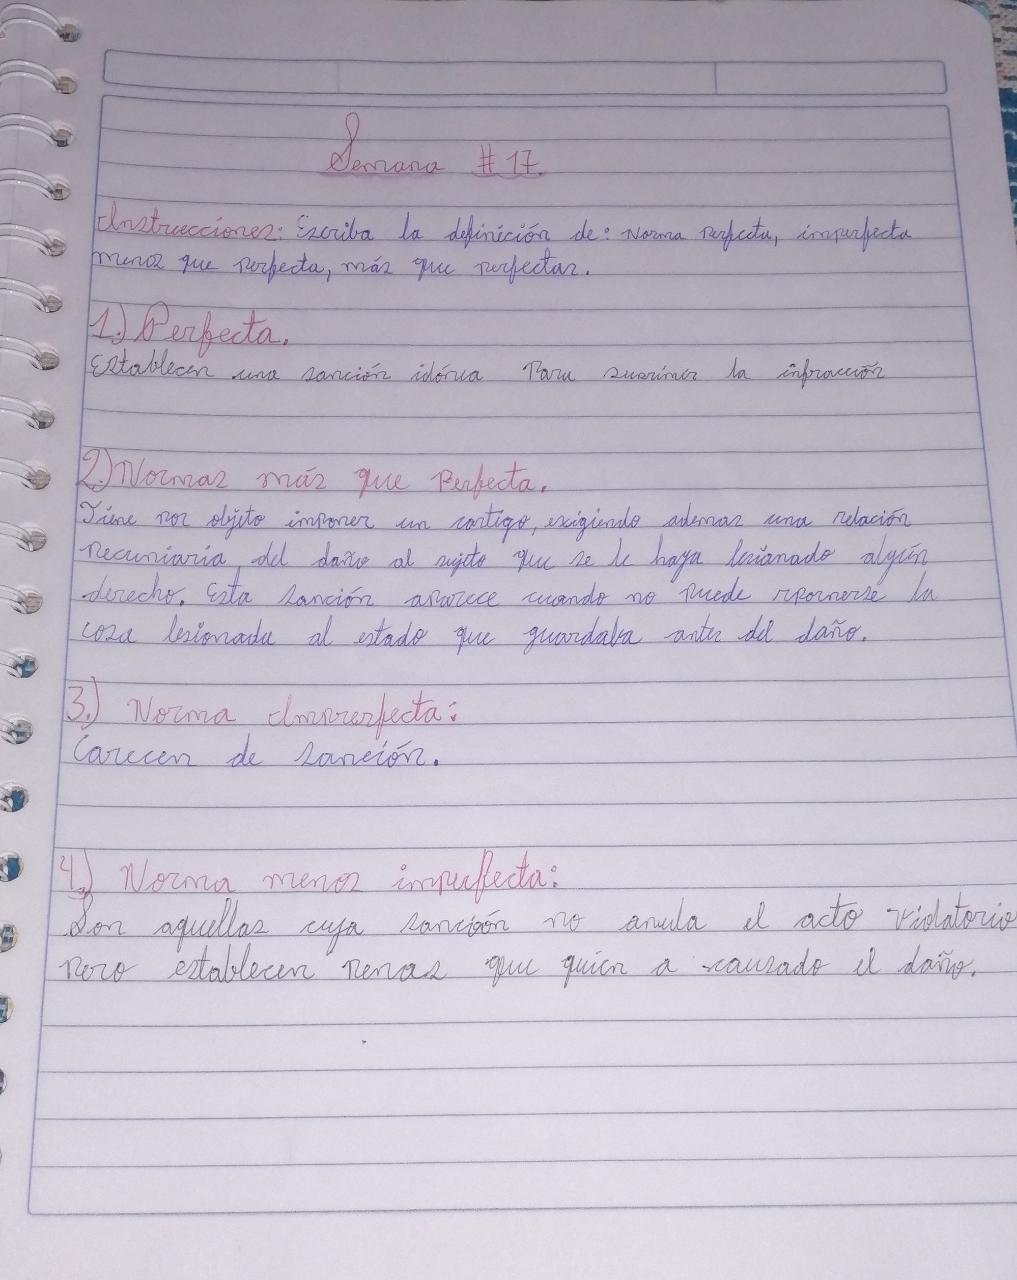 Semana # 17.
Instrucciones: Escriba la definición de: Norma Perfecta, imperfecta
menos que perfecta, más que perfectas.
1.) Perfecta.
Establecen una sanción idónea Para suprimir la infracción
2.) Normas más que Perfecta.
Tiene por objeto imponer un castigo, exigiendo ademas una relación
pecuniaria del daño al sujeto que se le haya lesionado algún
derecho. Esta sanción aparece cuando no puede reponerse la
cosa lesionada al estado que guardaba antes del daño.
3.) Norma Imperfecta:
Carecen de sanción.
4.) Norma menos imperfecta:
Son aquellas cuya sanción no anula el acto violatorio
pero establecen penas que quien a causado el daño.